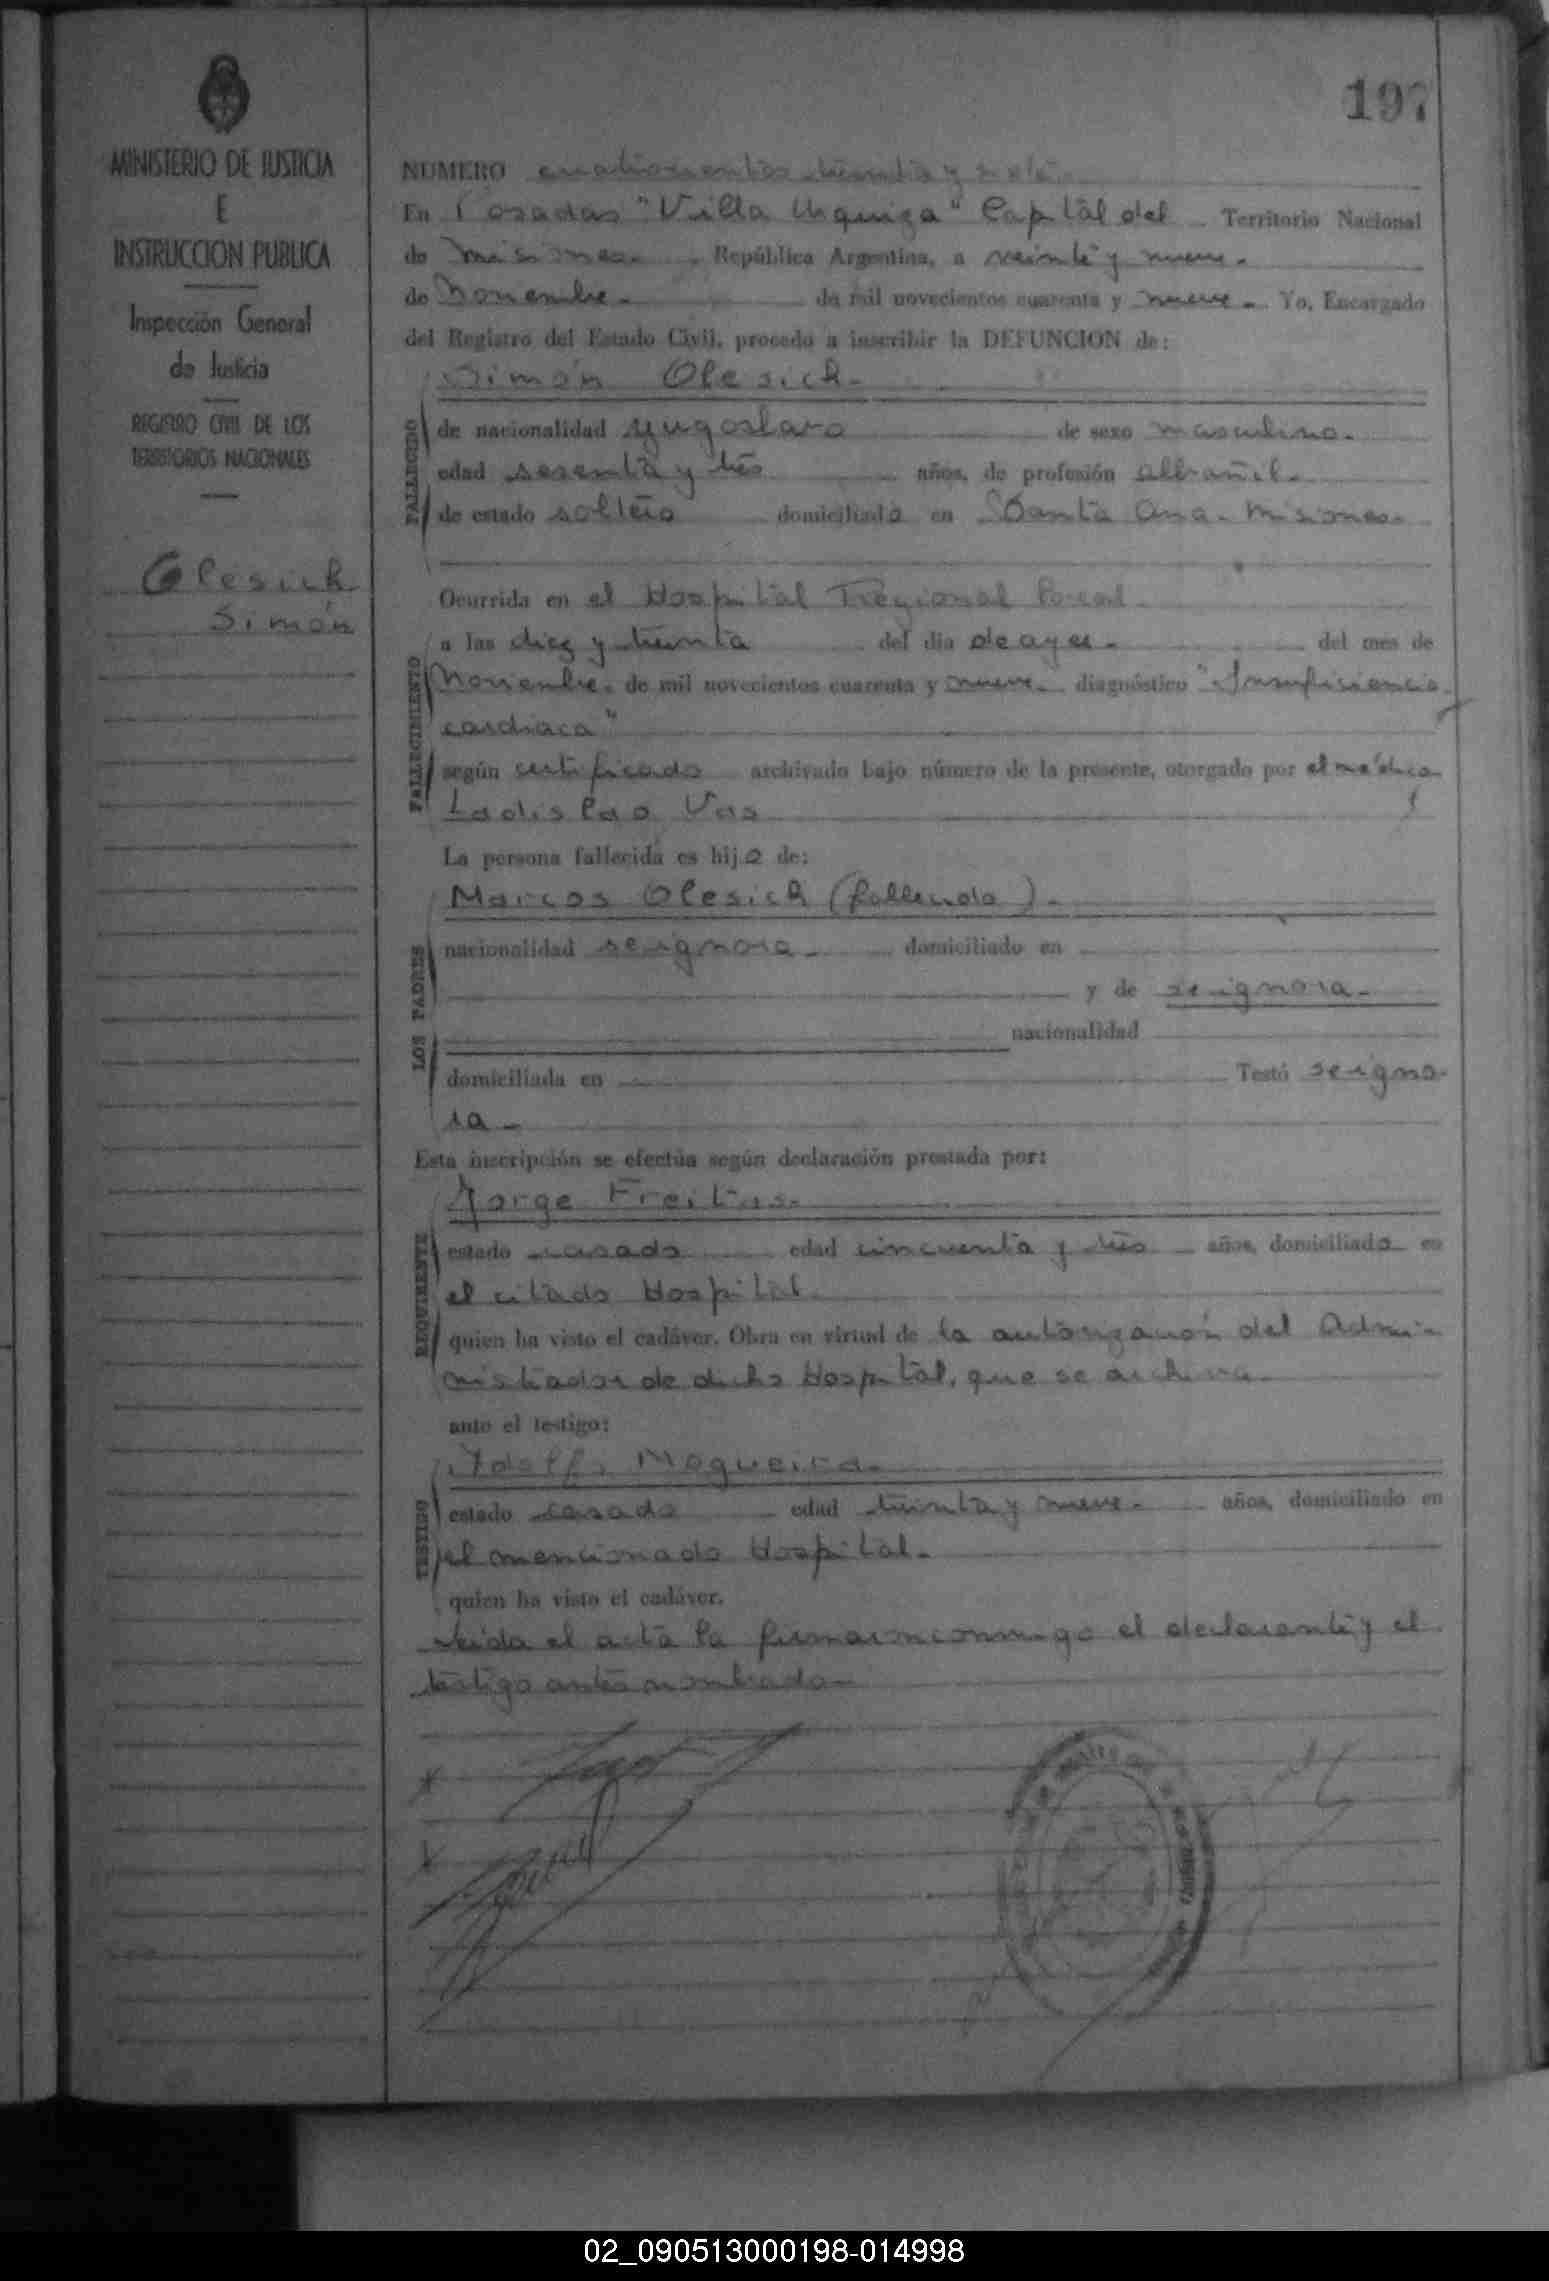 197
MINISTERIO DE JUSTICIA
E
INSTRUCCION PUBLICA
Inspección General
de Justicia
REGISTRO CIVIL DE LOS
TERRITORIOS NACIONALES
Olesich
Simón
NUMERO cuatrocientos treinta y siete.
En Posadas "Villa Urquiza" Capital del Territorio Nacional
de Misiones. República Argentina, a veinte y nueve.
de Noviembre. de mil novecientos cuarenta y nueve. Yo, Encargado
del Registro del Estado Civil, procedo a inscribir la DEFUNCION de:
Simón Olesich.
FALLECIDO
de nacionalidad yugoslavo de sexo masculino.
edad sesenta y tres años, de profesión albañil.
de estado soltero domiciliado en Santa Ana. Misiones.
Ocurrida en el Hospital Regional local.
FALLECIMIENTO
a las diez y treinta del día de ayer. del mes de
Noviembre. de mil novecientos cuarenta y nueve. diagnóstico "Insuficiencia
cardiaca"
según certificado archivado bajo número de la presente, otorgado por el médico
Ladislao Vas
La persona fallecida es hijo de:
LOS PADRES
Marcos Olesich (fallecido).
nacionalidad se ignora. domiciliado en
y de se ignora.
nacionalidad
domiciliada en Testó se igno-
ra.
Esta inscripción se efectúa según declaración prestada por:
REQUIRENTE
Jorge Freitas.
estado casado edad cincuenta y tres años, domiciliado en
el citado Hospital.
quien ha visto el cadáver. Obra en virtud de la autorización del Admi-
nistrador de dicho Hospital, que se archiva.
ante el testigo:
TESTIGO
Adolfo Nogueira.
estado casado edad treinta y nueve. años, domiciliado en
el mencionado Hospital.
quien ha visto el cadáver.
Leída el acta la firmaron conmigo el declarante y el
testigo antes nombrado.
02_090513000198-014998